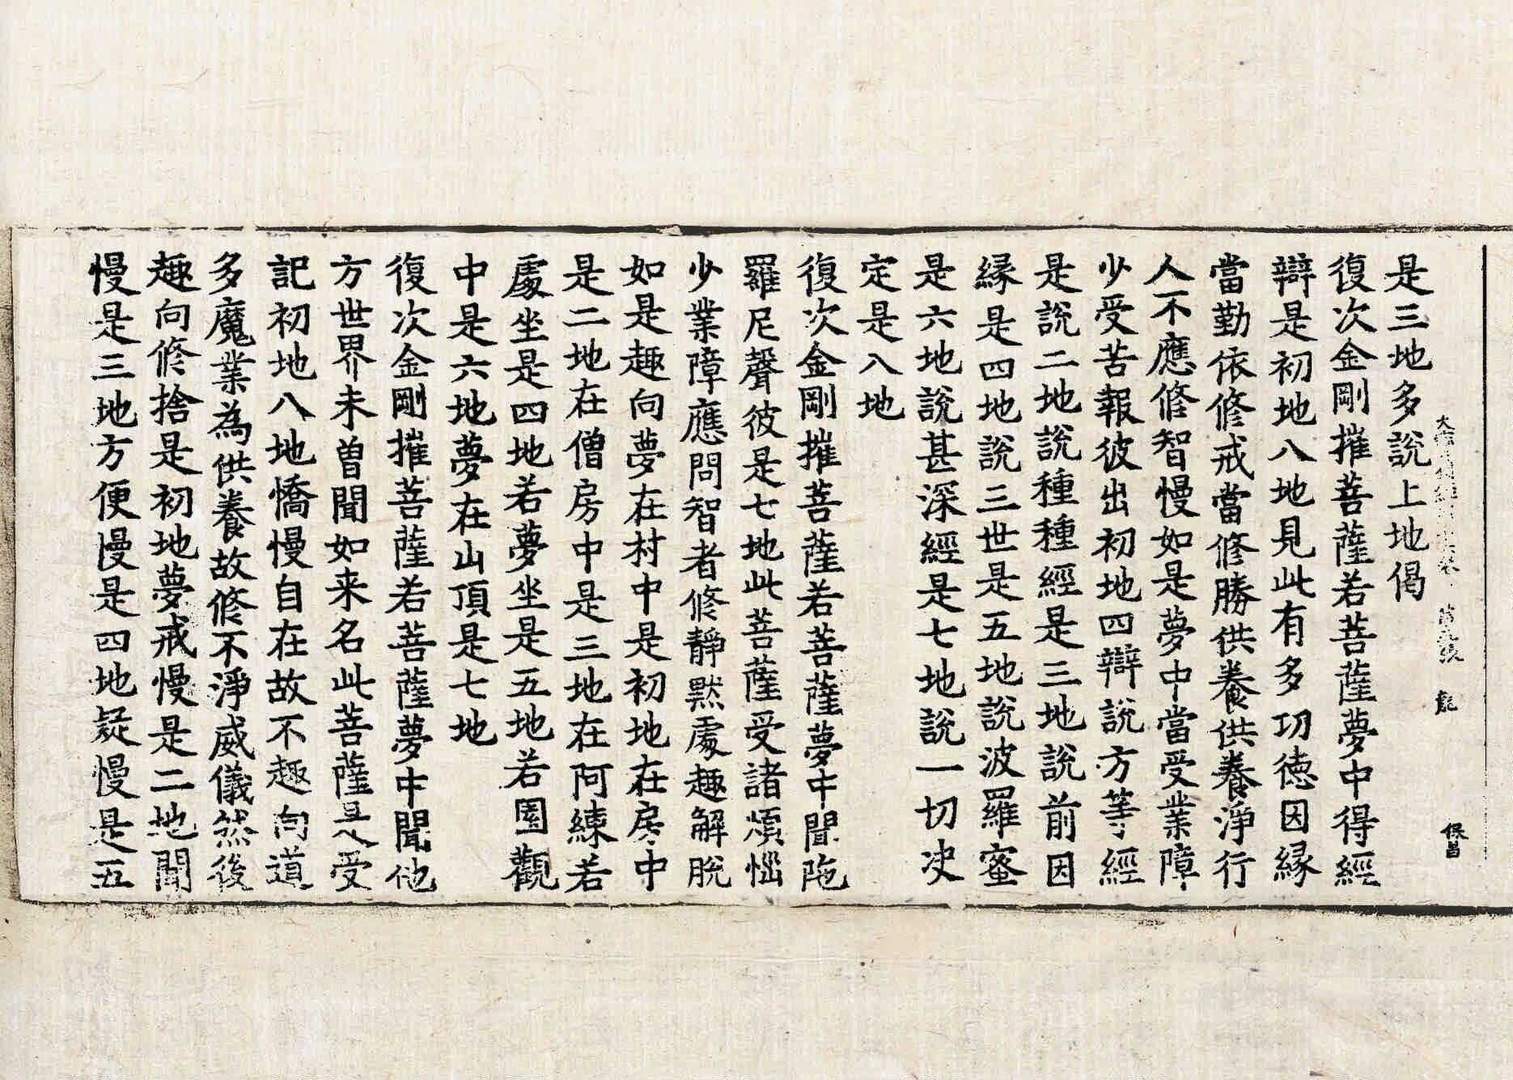 是三地多說上地偈
復次金剛摧菩薩若菩薩夢中得經
辯是初地八地見此有多功徳因縁
當勤依修戒當修勝供養供養淨行
人不應修智慢如是夢中當受業障
少受苦報彼出初地四辯說方等經
是說二地說種種經是三地說前因
縁是四地說三世是五地說波羅蜜
是六地說甚深經是七地說一切决
定是八地
復次金剛摧菩薩若菩薩夢中聞陁
羅尼聲彼是七地此菩薩受諸煩惱
少業障應問智者修靜黙處趣解脫
如是趣向夢在村中是初地在房中
是二地在僧房中是三地在阿練若
處坐是四地若夢坐是五地若園觀
中是六地夢在山頂是七地
復次金剛摧菩薩若菩薩夢中聞他
方世界未曽聞如来名此菩薩是受
記初地八地憍慢自在故不趣向道
多魔業為供養故修不淨威儀然後
趣向修捨是初地夢戒慢是二地聞
慢是三地方便慢是四地疑慢是五
龍
保昌